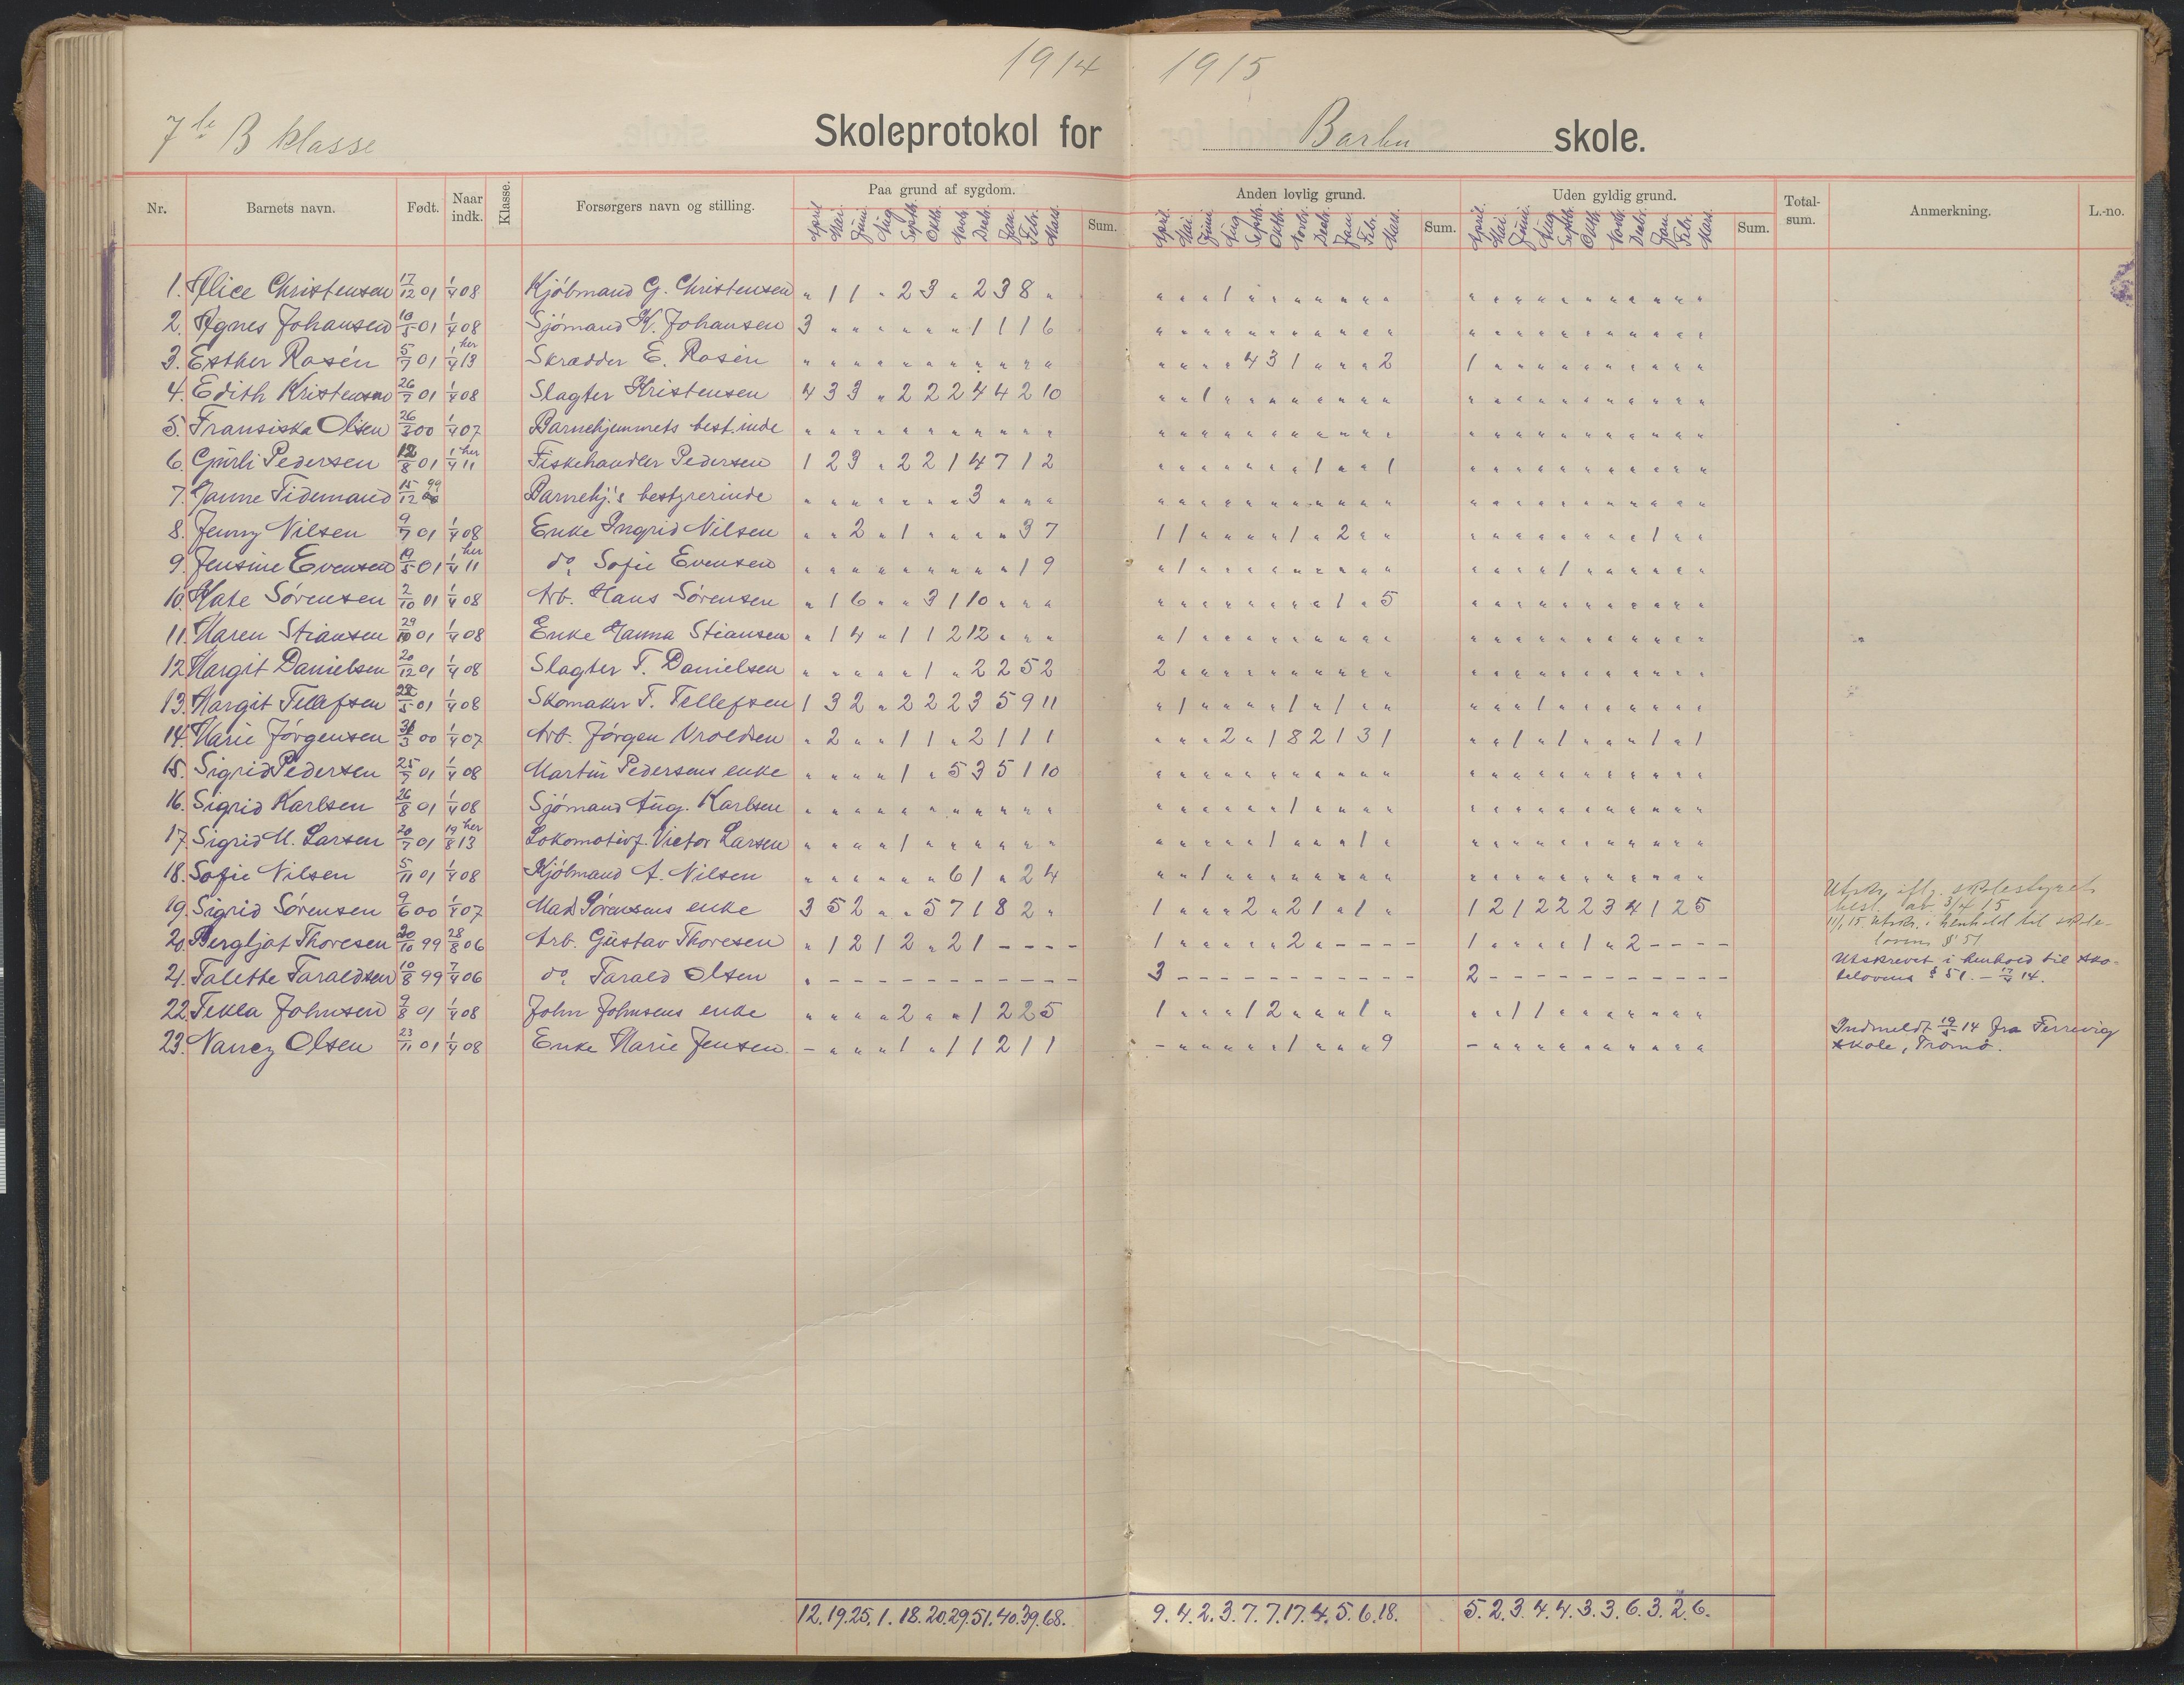 1914 1915
7de B klasse
Skoleprotokol for Barbu skole.
Nr. Barnets navn. Født. Naar indk. Klasse. Forsørgers navn og stilling. Paa grund af sygdom. Sum. Anden lovlig grund. Sum. Uden gyldig grund. Sum. Total-sum. Anmerkning. L.-no.
April Mai Juni Aug Septb. Oktb. Novb. Decb. Jan. Febr. Mars. April Mai Juni Aug Septb. Oktb. Novbr. Decb. Jan. Febr. Mars. April Mai Juni Aug Septb. Oktb. Novb. Decbr. Jan. Febr. Mars.
1. Alice Christensen 17/12 01 1/4 08 Kjöbmand G. Christensen " 1 1 " 2 3 " 2 3 8 " " " " 1 " " " " " " " " " " " " " " " " " "
2. Agnes Johansen 10/5 01 1/4 08 Sjömand K. Johansen 3 " " " " " " 1 1 1 6 " " " " " " " " " " " " " " " " " " " " " "
3. Esther Rosén 5/7 01 1/4 13 her Skrædder E. Rosén " " " " " " " " " " " " " " " 4 3 1 " " " 2 1 " " " " " " " " " "
4. Edith Kristensen 26/7 01 1/4 08 Slagter Kristensen 4 3 3 " 2 2 2 4 4 2 10 " " 1 " " " " " " " " " " " " " " " " " " "
5. Fransiska Olsen 26/3 00 1/4 07 Barnehjemmets best.inde " " " " " " " " " " " " " " " " " " " " " " " " " " " " " " " " "
6. Gurli Pedersen 12/8 01 1/4 11 her Fiskehandler Pedersen 1 2 3 " 2 2 1 4 7 1 2 " " " " " " " 1 " " 1 " " " " " " " " " " "
7. Janne Tidemand 15/12 99 Barnehj.'s bestyrerinde " " " " " " " 3 " " " " " " " " " " " " " " " " " " " " " " " " "
8. Jenny Nilsen 9/7 01 1/4 08 Enke Ingrid Nilsen " " 2 " 1 " " " " 3 7 1 1 " " " " 1 " 2 " " " " " " " " " " 1 " "
9. Jensine Evensen 19/5 01 1/4 11 her do. Sofie Evensen " " " " " " " " " 1 9 " 1 " " " " " " " " " " " " " 1 " " " " " "
10. Kate Sörensen 2/10 01 1/4 08 Arb. Hans Sörensen " 1 6 " " 3 1 10 " " " " " " " " " " " 1 " 5 " " " " " " " " " " "
11. Karen Stiansen 29/10 01 1/4 08 Enke Hanna Stiansen " 1 4 " 1 1 2 12 " " " " 1 " " " " " " " " " " " " " " " " " " " "
12 Margit Danielsen 20/12 01 1/4 08 Slagter T. Danielsen " " " " " 1 " 2 2 5 2 2 " " " " " " " " " " " " " " " " " " " " "
13. Margit Tellefsen 22/5 01 1/4 08 Skomaker T. Tellefsen 1 3 2 " 2 2 2 3 5 9 11 " 1 " " " " 1 " 1 " " " " " 1 " " " " " " "
14. Marie Jörgensen 31/3 00 1/4 07 Arb. Jörgen Nroldsen " 2 " " 1 1 " 2 1 1 1 " " " 2 " 1 8 2 1 3 1 " " 1 " 1 " " " 1 " 1
15. Sigrid Pedersen 25/7 01 1/4 08 Martin Pedersens enke " " " " 1 " 5 3 5 1 10 " " " " " " " " " " " " " " " " " " " " " "
16. Sigrid Karlsen 26/8 01 1/4 08 Sjömand Aug. Karlsen " " " " " " " " " " " " " " " " " 1 " " " " " " " " " " " " " " "
17. Sigrid M. Larsen 20/7 01 19/8 13 her Lokomotivf. Victor Larsen " " " " 1 " " " " " " " " " " " 1 " " " 1 " " " " " " " " " " " "
18. Sofie Nilsen 5/11 01 1/4 08 Kjöbmand A. Nilsen " " " " " " 6 1 " 2 4 " " 1 " " " " " " " " " " " " " " " " " " "
19. Sigrid Sörensen 9/6 00 1/4 07 Mads Sörensens enke 3 5 2 " " 5 7 1 8 2 " 1 " " " 2 " 2 1 " 1 " 1 2 1 2 2 2 3 4 1 2 5 Utskr. iflg. skolestyrets best. ab 3/4 15
20. Bergljot Thoresen 20/10 99 28/8 06 Arb. Gustav Thoresen " 1 2 1 2 " 2 1 - - - - 1 " " " " " 2 " - - - - 1 " " " " 1 " 2 - - - - 11/1 15 utskr. i henhold til skolelovens § 51
21. Talette Taraldsen 10/8 99 7/4 06 do. Tarald Olsen " - - - - - - - - - - - 3 - - - - - - - - - - 2 - - - - - - - - - - Utskrevet i henhold til skolelovens § 51. - 17/4 14.
22. Tekla Johnsen 9/8 01 1/4 08 John Johnsens enke " " " " 2 " " 1 2 2 5 1 " " " 1 2 " " " 1 " " " 1 1 " " " " " " "
23. Nancy Olsen 23/11 01 1/4 08 Enke Marie Jensen. - " " " 1 " 1 1 2 1 1 - " " " " " 1 " " " 9 - " " " " " " " " " " Indmeldt 19/5 14 fra Færrevig skole, Tromö.
12. 19. 25. 1. 18. 20. 29. 51. 40. 39. 68. 9. 4. 2. 3. 7. 7. 17. 4. 5. 6. 18. 5. 2. 3. 4. 4. 3. 3. 6. 3. 2. 6.